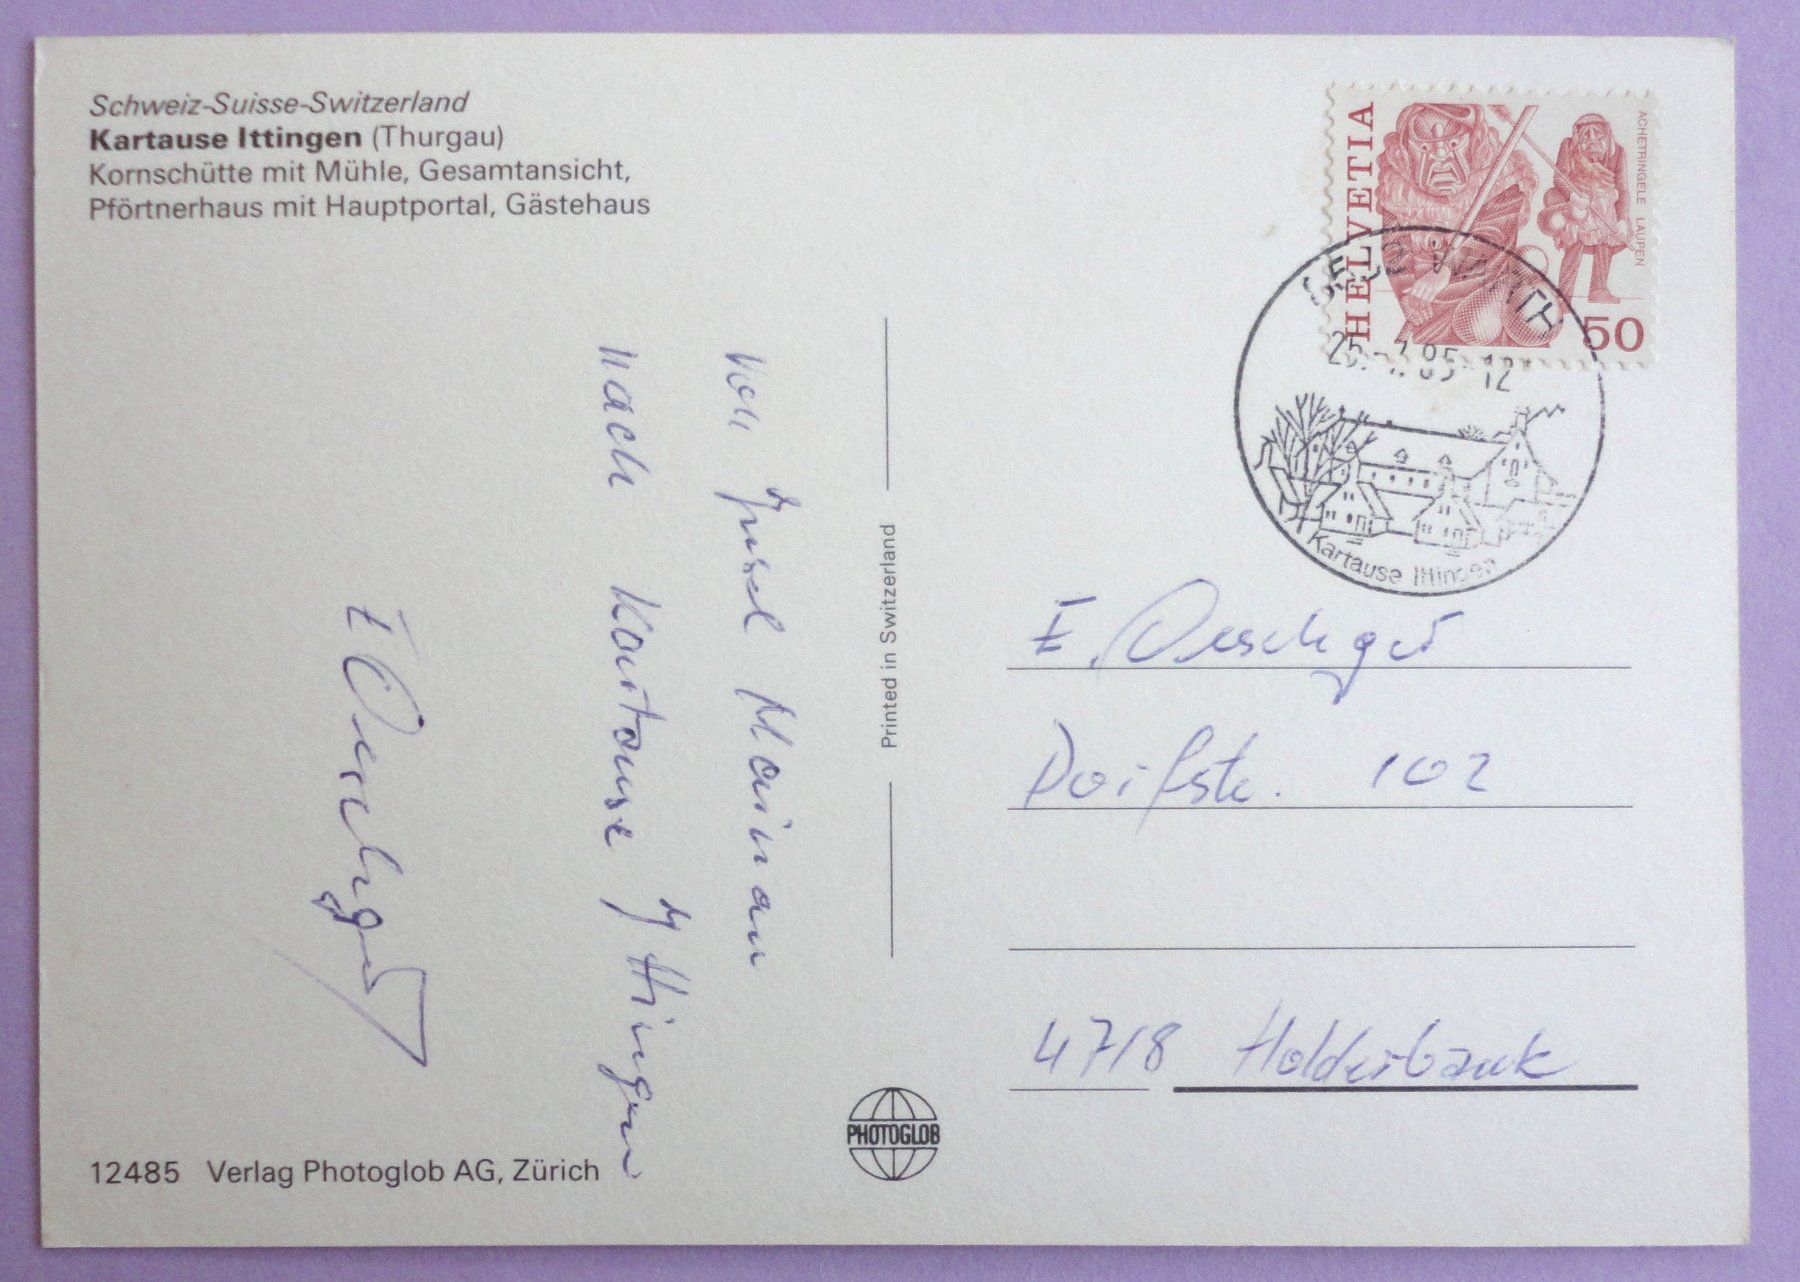 Schweiz-Suisse-Switzerland
Kartause Ittingen (Thurgau)
Kornschütte mit Mühle, Gesamtansicht,
Pförtnerhaus mit Hauptportal, Gästehaus
von Insel Mainau
nach Kartause Ittingen
E Oeschger
12485 Verlag Photoglob AG, Zürich
Printed in Switzerland
PHOTOGLOB
HELVETIA
ACHETRINGELE LAUPEN
50
WARTH
85-12
Kartause Ittingen
E. Oeschger
Dorfstr. 102
4718 Holderbank